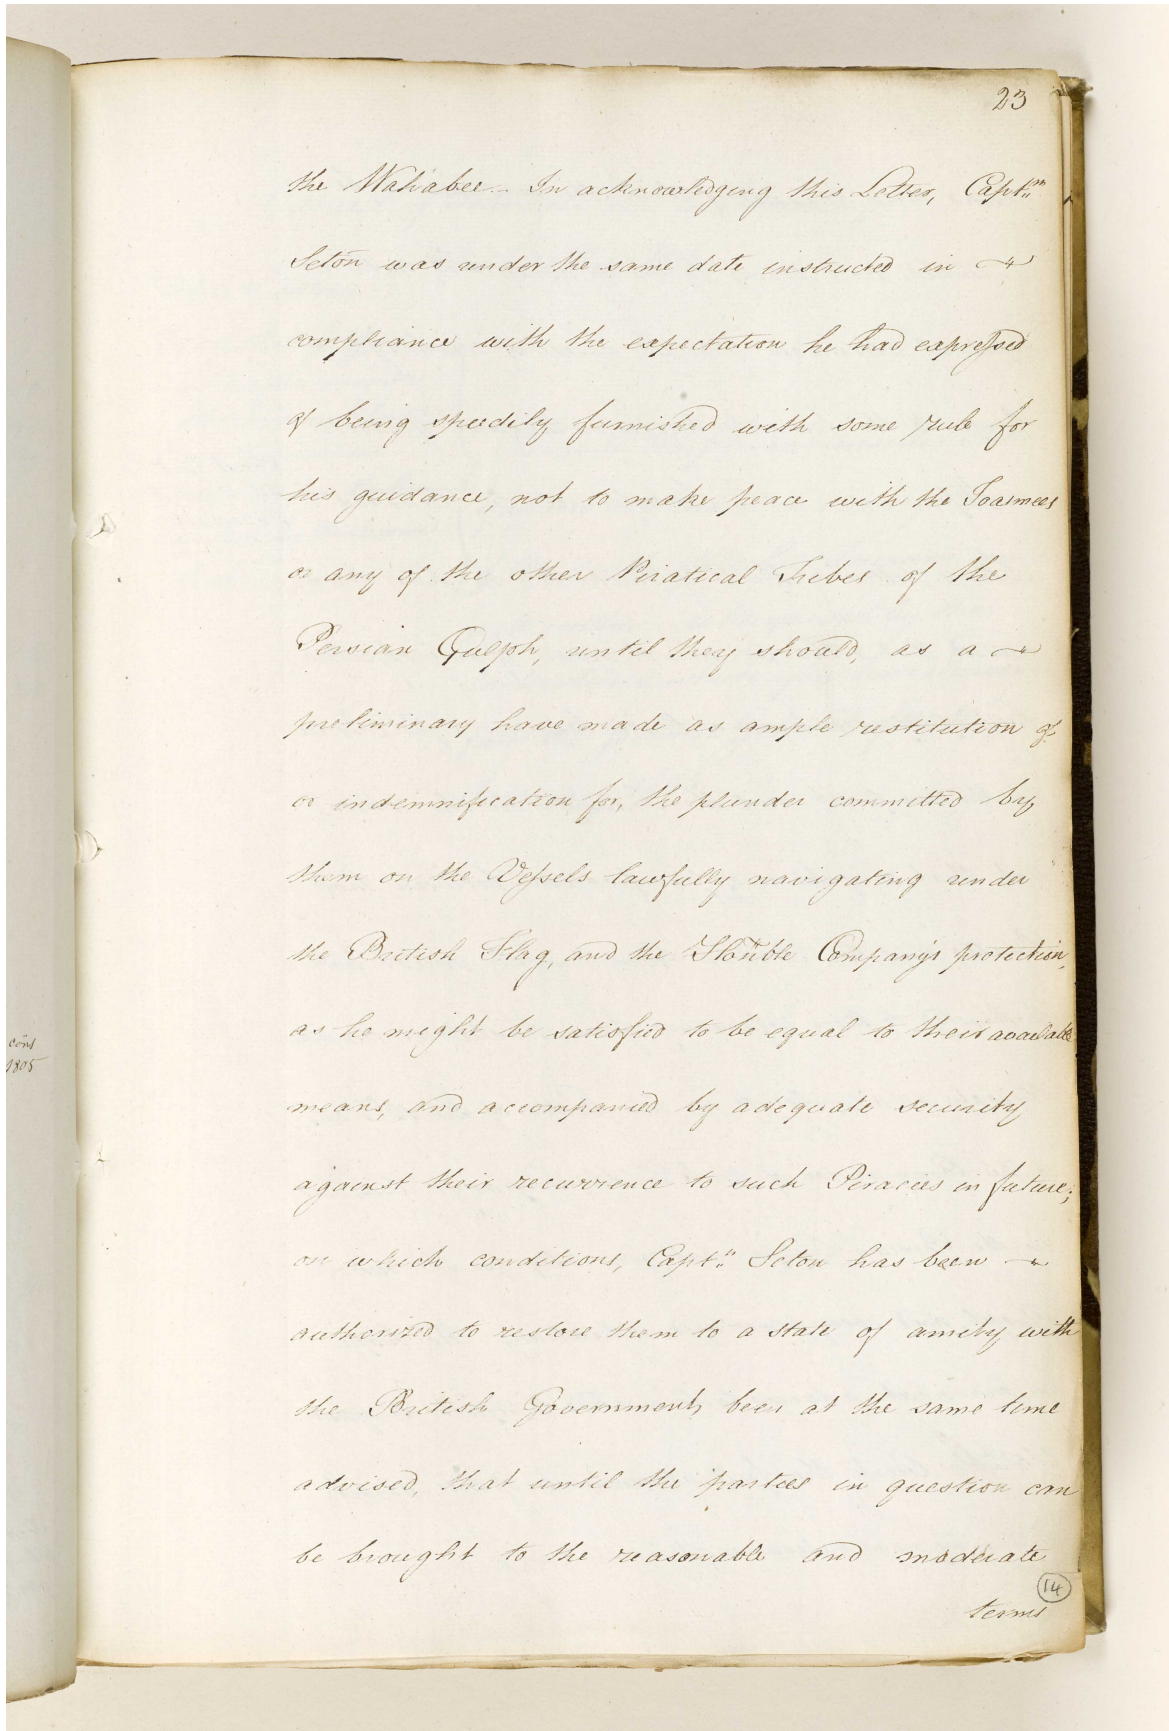 23
the Wahabee - In acknowledging this Letter, Capt:n
Seton was under the same date instructed in
compliance with the expectation he had expressed
of being speedily furnished with some rule for
his guidance, not to make peace with the Joasmees
or any of the other Piratical Tribes of the
Persian Gulph, until they should, as a
preliminary have made as ample restitution of
or indemnification for, the plunder committed by
them on the Vessels lawfully navigating under
the British Flag, and the Hon'ble Company's protection,
as he might be satisfied to be equal to their available
means, and accompanied by adequate security
against their recurrence to such Piracies in future;
on which conditions, Capt:n Seton has been
authorized to restore them to a state of amity with
the British Government, been at the same time
advised, that until the parties in question can
be brought to the reasonable and moderate
terms
14
cons
1805